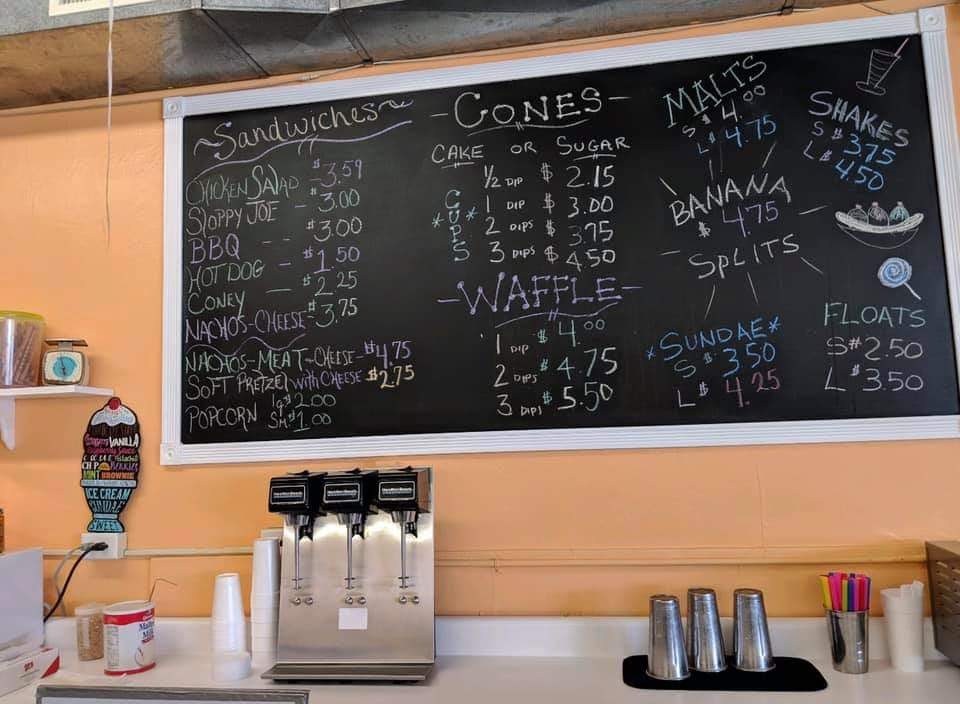 ~Sandwiches~
CHICKEN SALAD - $3.59
SLOPPY JOE - $3.00
BBQ -- $3.00
HOT DOG - $1.50
CONEY - $2.25
NACHOS-CHEESE - $3.75
NACHOS-MEAT-CHEESE - $4.75
SOFT PRETZEL with CHEESE $2.75
POPCORN lg $2.00
SM $1.00
-CONES-
CAKE OR SUGAR
*CUPS*
1/2 DIP $2.15
1 DIP $3.00
2 DIPS $3.75
3 DIPS $4.50
-WAFFLE-
1 DIP $4.00
2 DIPS $4.75
3 DIPS $5.50
MALTS
S $4.00
L $4.75
SHAKES
S $3.75
L $4.50
BANANA
$4.75
SPLITS
*SUNDAE*
S $3.50
L $4.25
FLOATS
S $2.50
L $3.50
VANILLA
MINT BROWNIE
ICE CREAM
SWEET
Hamilton Beach
Hamilton Beach
Hamilton Beach
Malted
Milk